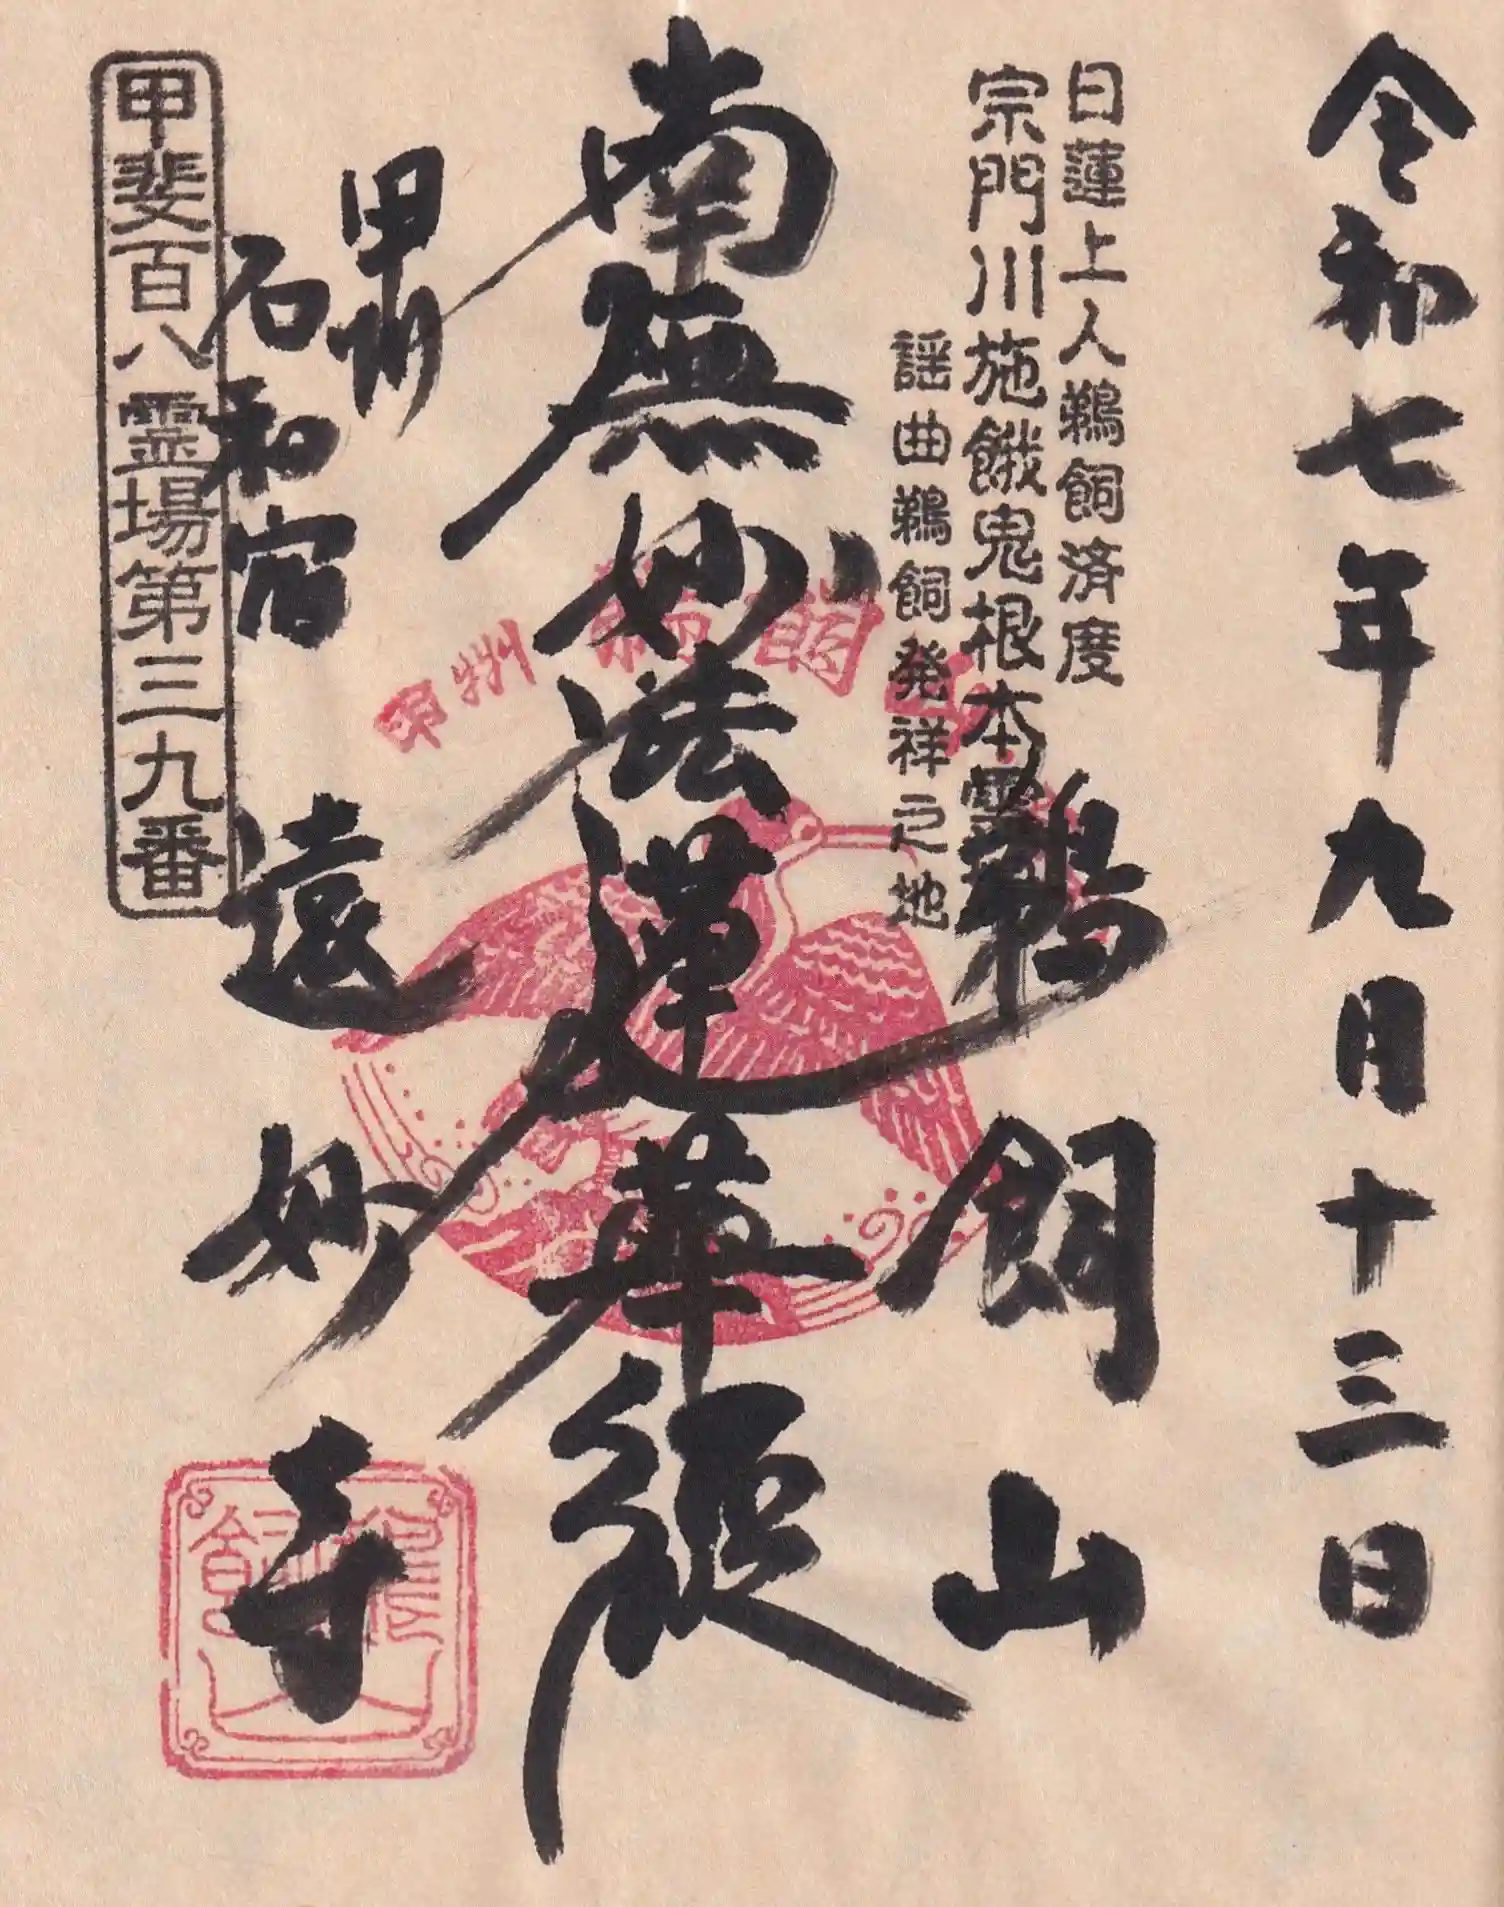 令和七年九月十三日
日蓮上人鵜飼済度
宗門川施餓鬼根本霊
謡曲鵜飼発祥之地
鵜飼山
南無妙法蓮華経
甲州
石和宿
遠妙寺
甲斐百八霊場第三九番
甲州
鵜飼